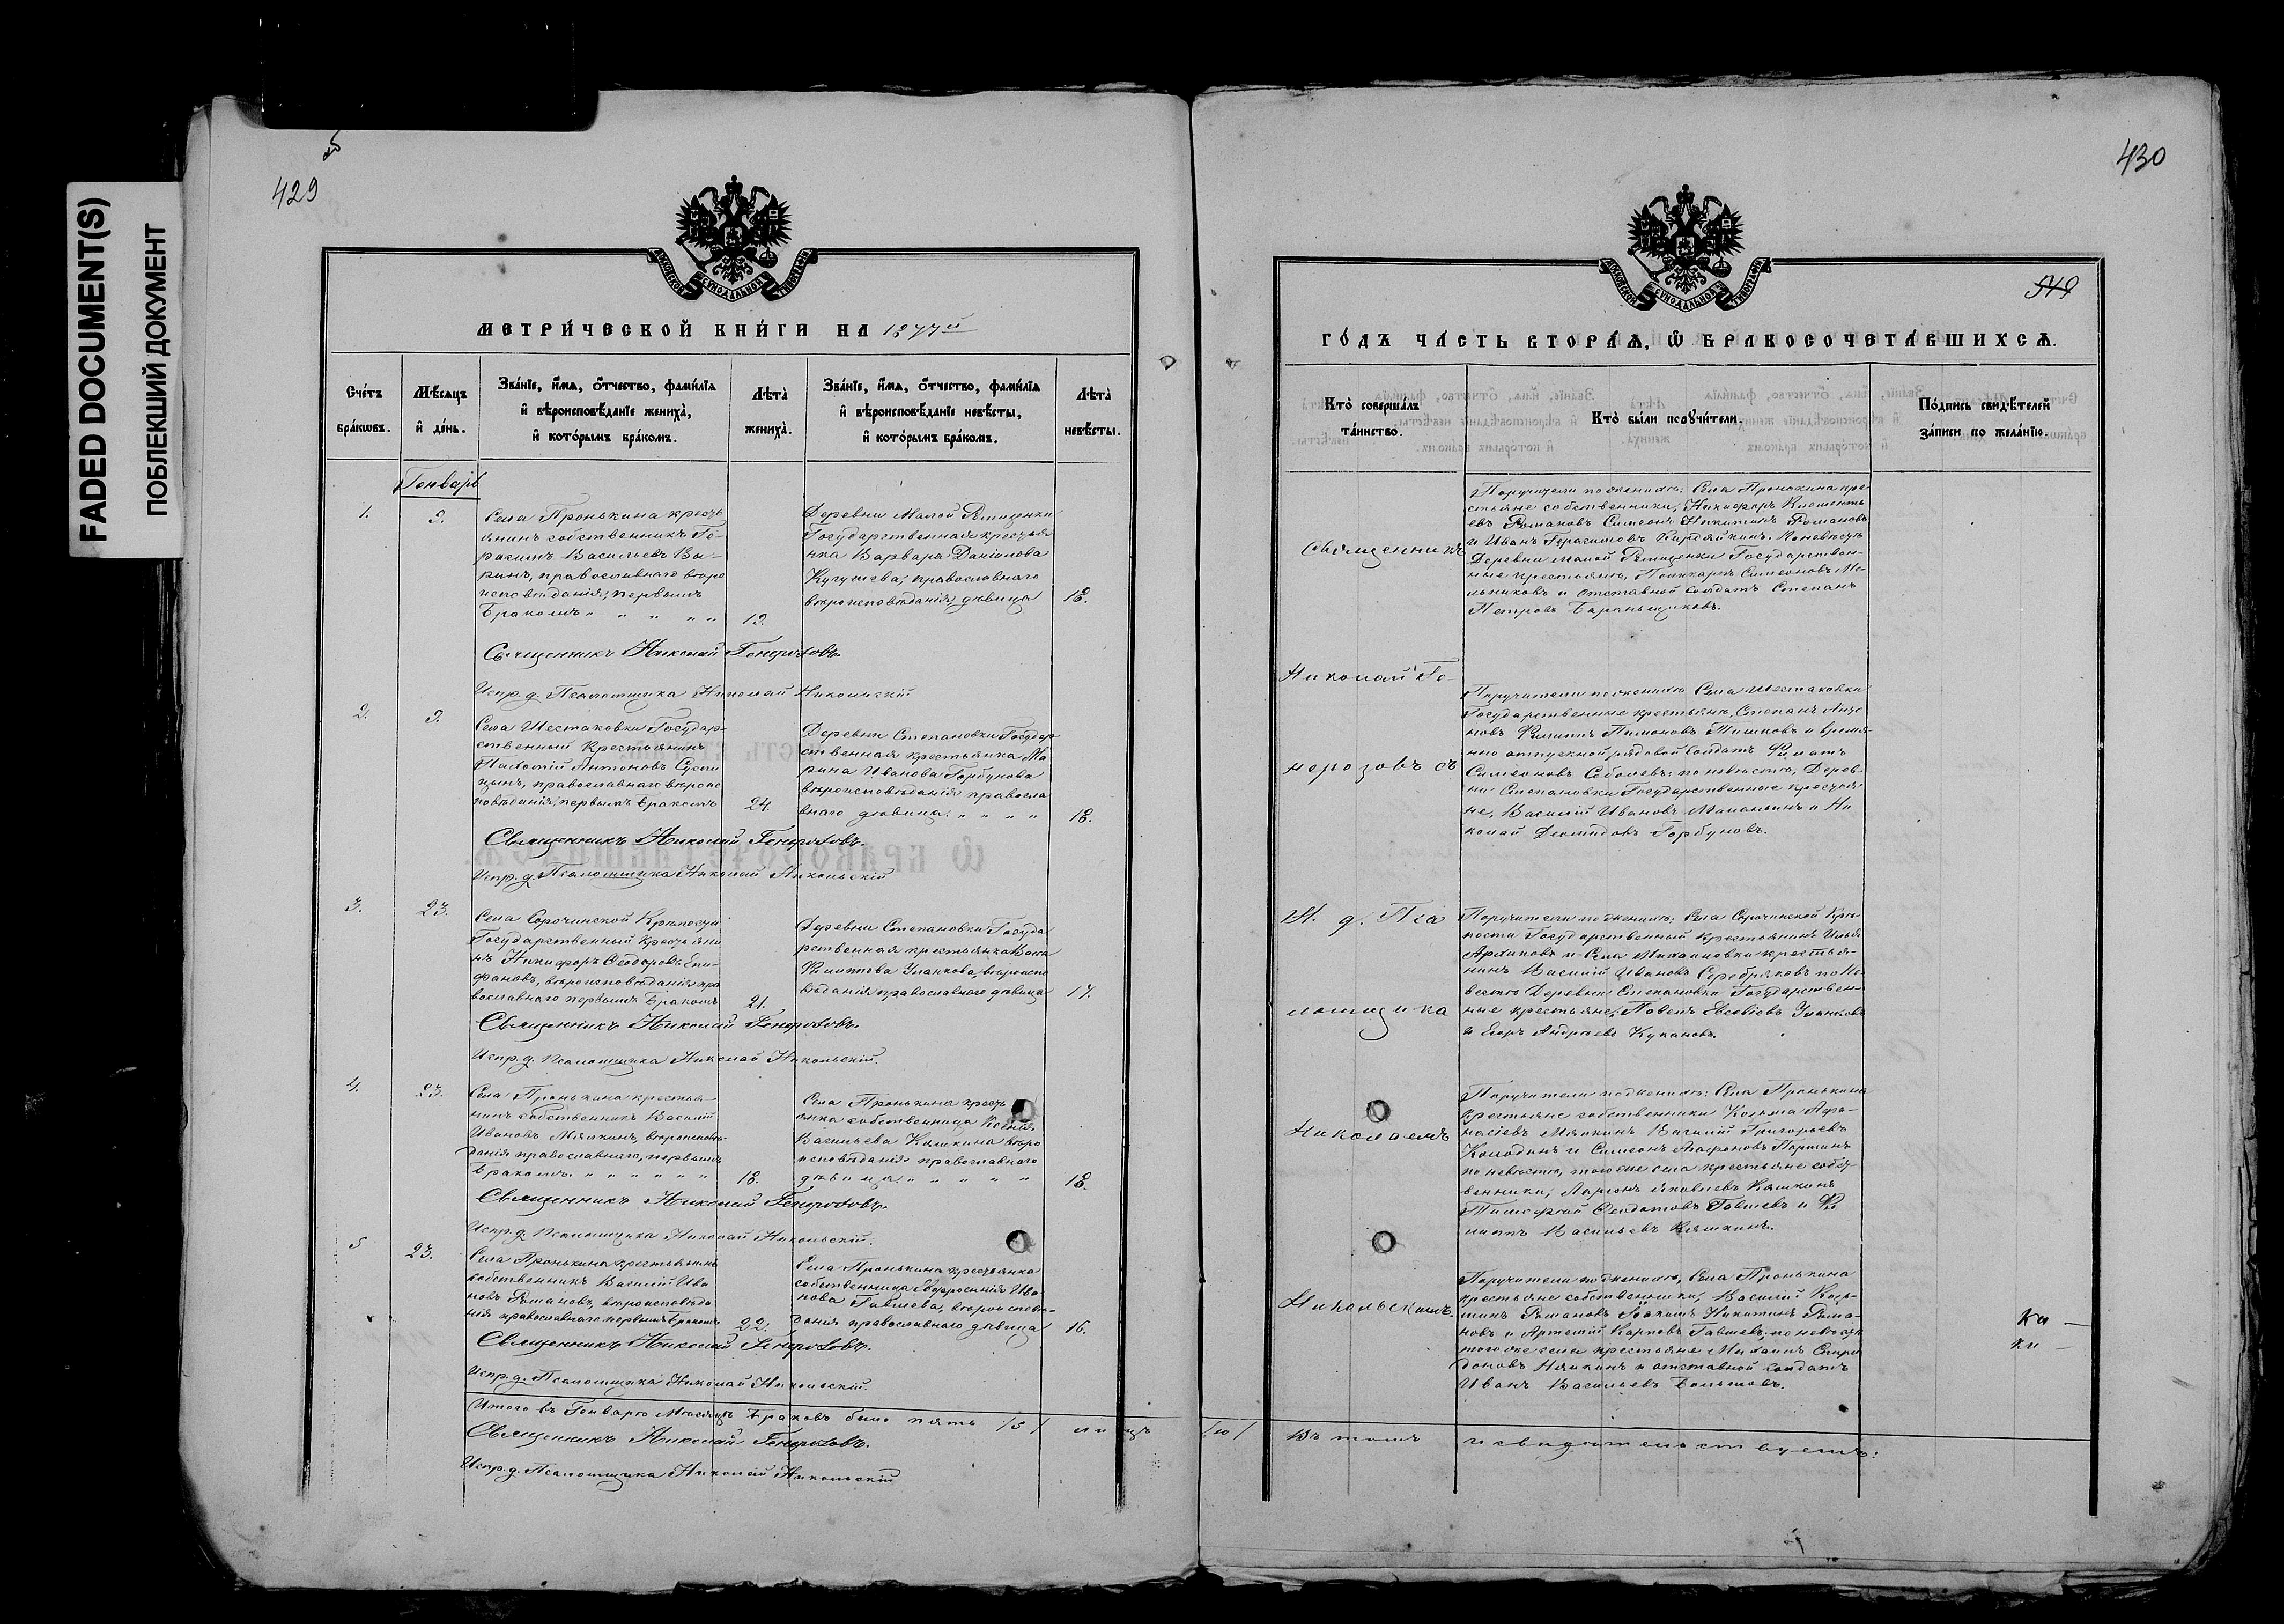 FADED DOCUMENT(S)
ПОБЛЕКШИЙ ДОКУМЕНТ
429
МЕТРИ́ЧЕСКОЙ КНИ́ГИ НА 1877й
Сче́тъ бра́кωвъ.
Мѣ́сяцъ и҆ де́нь.
Зва́нїе, и҆́мѧ, ѻ҆́тчество, фами́лїѧ и҆ вѣроисповѣ́данїе жениха̀, и҆ кото́рымъ бра́комъ.
Лѣта̀ жениха̀.
Зва́нїе, и҆́мѧ, ѻ҆́тчество, фами́лїѧ и҆ вѣроисповѣ́данїе невѣ́сты, и҆ кото́рымъ бра́комъ.
Лѣта̀ невѣ́сты.
Генварь
1.
9.
Села Пронькина кресть
янинъ собственникъ Ге-
расимъ Васильевъ Вы-
ринъ, православнаго вѣро
исповѣданія, первымъ
бракомъ
19.
Деревни Малой Ремизенки
Государственная крестья
нка Варвара Даніилова
Кугушева, православнаго
вѣроисповѣданія, дѣвица
18.
Священникъ Николай Генерозовъ.
Испр. д. Псаломщика Николай Никольскій
2.
9.
Села Шестаковки Государ-
ственный крестьянинъ
Антоновъ
цынъ, православнаго вѣроис
повѣданія, первымъ бракомъ
24.
Деревни Степановки Государ
ственная крестьянка Ма
рина Иванова Горбунова
вѣроисповѣданія правосла
внаго дѣвица
18.
Священникъ Николай Генерозовъ.
Испр. д. Псаломщика Николай Никольскій
3.
23.
Села Сорочинской Крѣпости
Государственный крестьяни
нъ Никифоръ Ѳеодоровъ Епи-
фановъ, вѣроисповѣданія пра
вославнаго первымъ бракомъ
21.
Деревни Степановки Госуда
рственная крестьянка
Филиппова Уланкова, вѣроиспо
вѣданія православнаго дѣвица
17.
Священникъ Николай Генерозовъ.
Испр. д. Псаломщика Николай Никольскій.
4.
23.
Села Пронькина крестья-
нинъ собственникъ Василій
Ивановъ Мялкинъ, вѣроисповѣ-
данія православнаго, первымъ
бракомъ.
18.
Села Пронькина кресть
янка собственница
Васильева Кяшкина вѣро
исповѣданія православнаго
дѣвица.
18.
Священникъ Николай Генерозовъ.
Испр. д. Псаломщика Николай Никольскій.
5
23.
Села Пронькина крестьянинъ
собственникъ Василій Ива
новъ Романовъ, вѣроисповѣда
нія православнаго первымъ бракомъ
22.
Села Пронькина крестьянка
собственница Евфросинія Ива
нова Гавшева, вѣроисповѣ-
данія православнаго дѣвица
16.
Священникъ Николай Генерозовъ.
Испр. д. Псаломщика Николай Никольскій.
Итого въ Генварѣ мѣсяцѣ браковъ было пять /5/ лицъ /10/ Въ томъ и свидѣтельствуемъ:
Священникъ Николай Генерозовъ.
Испр. д. Псаломщика Николай Никольскій
430
549
ГО́ДЪ ЧА́СТЬ ВТОРА́Ѧ, Ѽ БРАКОСОЧЕТА́ВШИХСѦ.
Кто̀ соверша́лъ та́инство.
Кто̀ бы́ли порꙋчи́тели.
По́дпись свидѣ́телей за́писи по жела́нїю.
Священникъ
Николай Ге-
нерозовъ съ
И. д. Пса
ломщика
Николаемъ
Никольскимъ
Поручители по женихѣ: Села Пронькина кре-
стьяне собственники, Никифоръ Клементь
евъ Романовъ Симеонъ Никитинъ Романовъ
и Иванъ Герасимовъ Кирдяшкинъ. По невѣстѣ
Деревни малой Ремизенки Государствен-
ные крестьяне, Поликарпъ Симеоновъ Ме-
льниковъ и отставной солдатъ Степанъ
Петровъ Бараньщиковъ.
Поручители по женихѣ Села Шестаковки
Государственные крестьяне, Степанъ
новъ Филиппъ и време-
нно отпускной рядовой солдатъ Филатъ
Симеоновъ Соболевъ: по невѣстѣ, Дерев-
ни Степановки Государственные крестья
не, Василій Ивановъ Мананьинъ и Ни
колай Демидовъ Горбуновъ.
Поручители по женихѣ: Села Сорочинской Крѣ-
пости Государственный крестьянинъ Илья
Архиповъ и Села Михаиловки крестья-
нинъ Василій Ивановъ Серебряковъ по Не
вестѣ Деревни Степановки Государствен-
ные крестьяне, Павелъ Евсевіевъ Уланковъ
и Егоръ Андреевъ Кукановъ.
Поручители по женихѣ: Села Пронькина
крестьяне собственники Козьма Афа-
насіевъ Мялкинъ Василій Григорьевъ
Колодинъ и Симеонъ
по невѣстѣ, того же села крестьяне собст-
венники, Ларіонъ Яковлевъ Кяшкинъ
Тимофей Ѳедотовъ Гавшевъ и Фи
липпъ Васильевъ Кяшкинъ.
Поручители по женихѣ, Села Пронькина
крестьяне собственники, Василій Козь-
минъ Романовъ Іоакимъ Никитинъ Рома-
новъ и Артемій Карповъ Гавшевъ, по невѣстѣ
того же села крестьяне Михаилъ Спири
доновъ Мялкинъ и отставной солдатъ
Иванъ Васильевъ Большовъ.